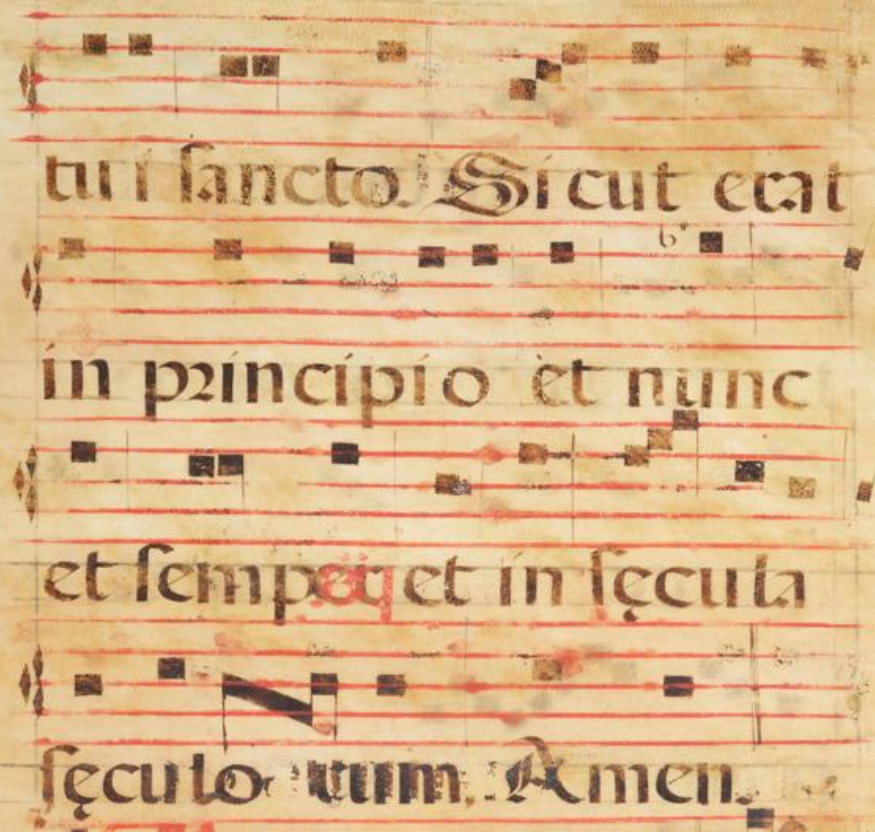 tui sancto. Sicut erat
in principio et nunc
et semper et in sęcula
sęculo rum. Amen.